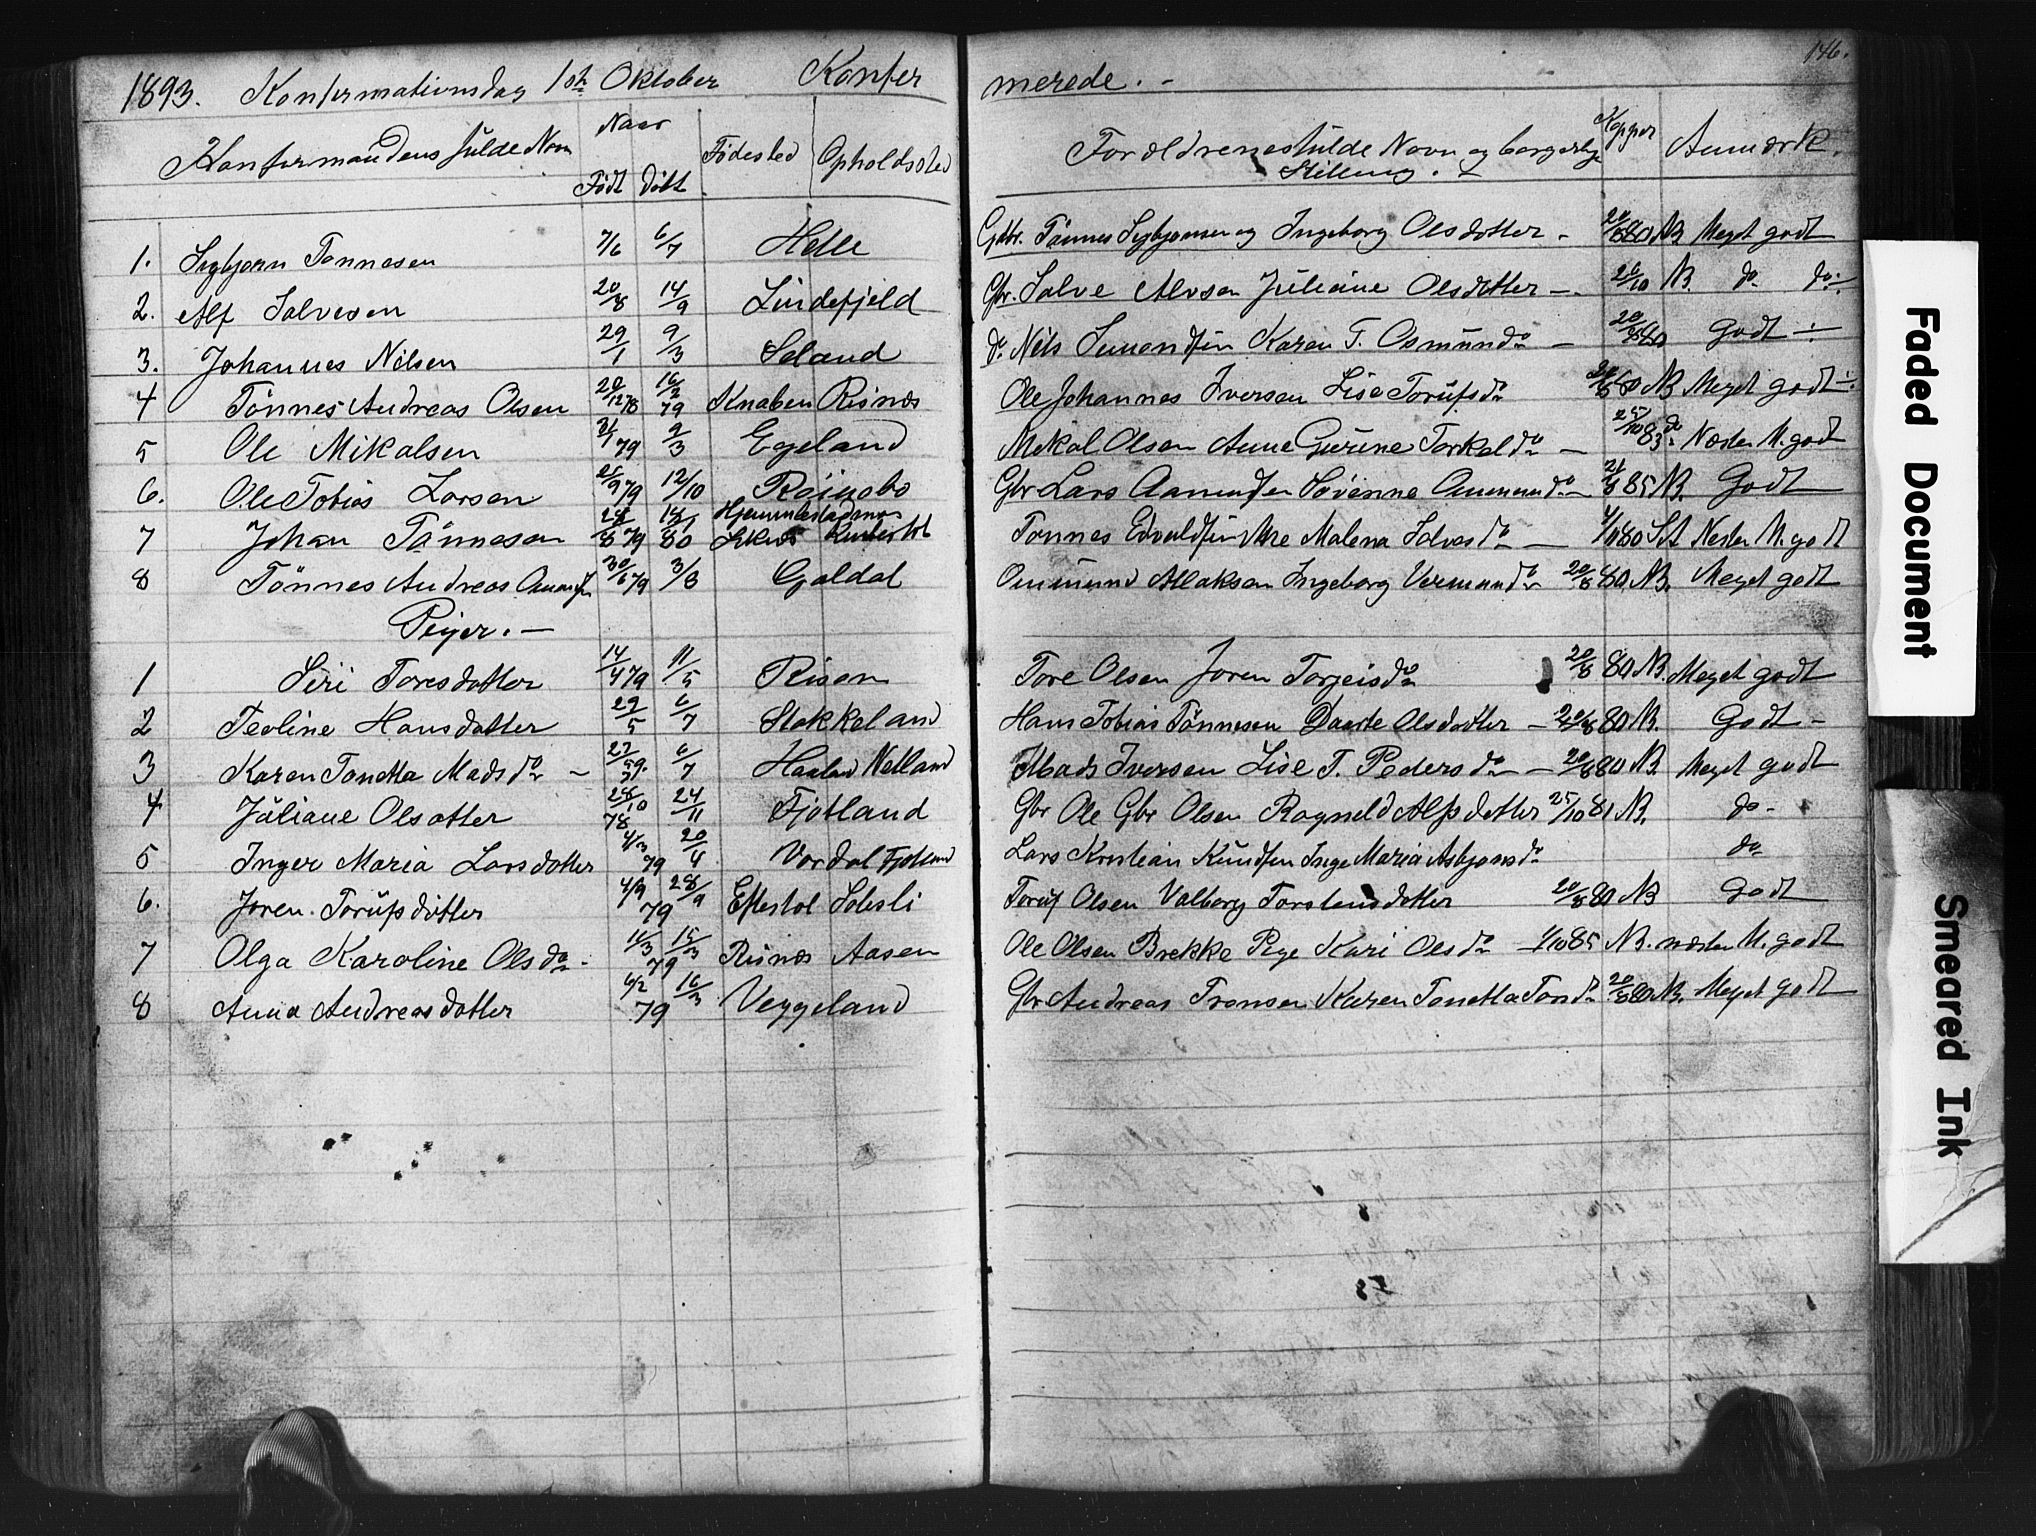 146.
1893. Konfirmationsdag 1ste Oktober Konfir merede. -
Konfirmandens fulde Navn Naar Født Døbt Fødested Opholdssted Forældrenes fulde Navn og borgerlige Stilling. Kopper Anmærk.
1. Sigbjørn Tønnesen 7/6 6/7 Helle Gbr. Tønnes Sigbjørnsen og Ingeborg Olsdotter - 20/8 80 NB Meget godt
2. Alf Salvesen 20/8 14/9 Lindefjeld Gbr. Salve Alvsen Juliane Olsdotter - 26/10 NB. do do -
3. Johannes Nilsen 29/1 9/3 Seland do Nils Karen T. Osmundsdr - 20/8 80 Godt -
4 Tønnes Andreas Olsen 20/12 78 16/2 79 Knaben Risnes Ole Johannes Iversen Lise Torufsdr 20/8 80 NB Meget godt -
5 Ole Mikalsen 21/1 79 2/3 Egeland Mikal Olsen Anne Gurine Torkelsdr - 25/10 83 do Næsten M. godt
6. Ole Tobias Larsen 25/9 79 12/10 Gbr Lars Aamundsen Sørenne Ommundsdr - 21/8 85 NB. Godt
7 Johan Tønnesen 28/8 79 18/1 80 Tønnes Edvaldsen Malena Salvesdr - 4/10 80 Næsten M. godt
8 Tønnes Andreas 30/6 79 3/8 Galdal Ommund Atlaksen Ingeborg Vermundsdr 20/8 80 NB. Meget godt
Piger. -
1 Siri Toresdatter 14/4 79 11/5 Risen Tore Olsen Joren Torjeisdr 20/8 80 NB. Meget godt
2 Teoline Hansdatter 29/5 6/7 Stakkeland Hans Tobias Tønnesen Daarte Olsdotter - 20/8 80 NB. Godt -
3 Karen Tonetta Madsdr - 27/5 79. 6/7 Haaland Netland Mads Iversen Lise T. Pedersdr - 20/8 80 NB. Meget godt
4 Juliane Olsdotter 28/10 78 24/11 Fjotland Gbr Ole Gbr Olsen Ragneld Alfsdotter 25/10 81 NB. do -
5 Inger Maria Larsdotter 4/3 79 20/4 Vordal Fjotland Lars Kristian Knudsen Inge Maria Asbjønsdr do
6. Joren Torufsdotter 4/9 79 28/9 Eftestol Solesli Toruf Olsen Valborg Torstensdotter 20/8 80 NB Godt
7 Olga Karoline Olsdr - 11/3 79 15/3 Risnes Aasen Ole Olsen Brekke Pige Kari Olsdr - 1/10 85 NB. næsten M. godt
8 Anna Andreasdotter 6/2 79 16/3 Veggeland Gbr Andreas Tronsen Karen Tonetta 20/8 80 NB. Meget godt
Faded Document
Smeared Ink